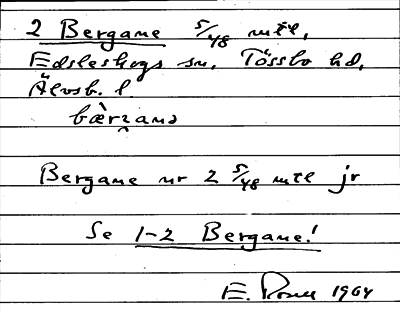 2 Bergane 5/48 mtl,
Edsleskogs sn, Tössbo hd,
Älvsb. l
bærgana
Bergane nr 2 5/48 mtl jr
Se 1-2 Bergane!
E. 1964